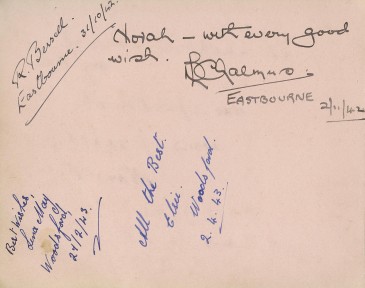 R. Bessell.
Eastbourne. 31/10/42.
Norah – with every good
wish.
EASTBOURNE
2/11/42
Best Wishes,
Lena May
Woodsford,
21/2/43
All the Best.
Elsie.
Woodsford.
2.4.43.